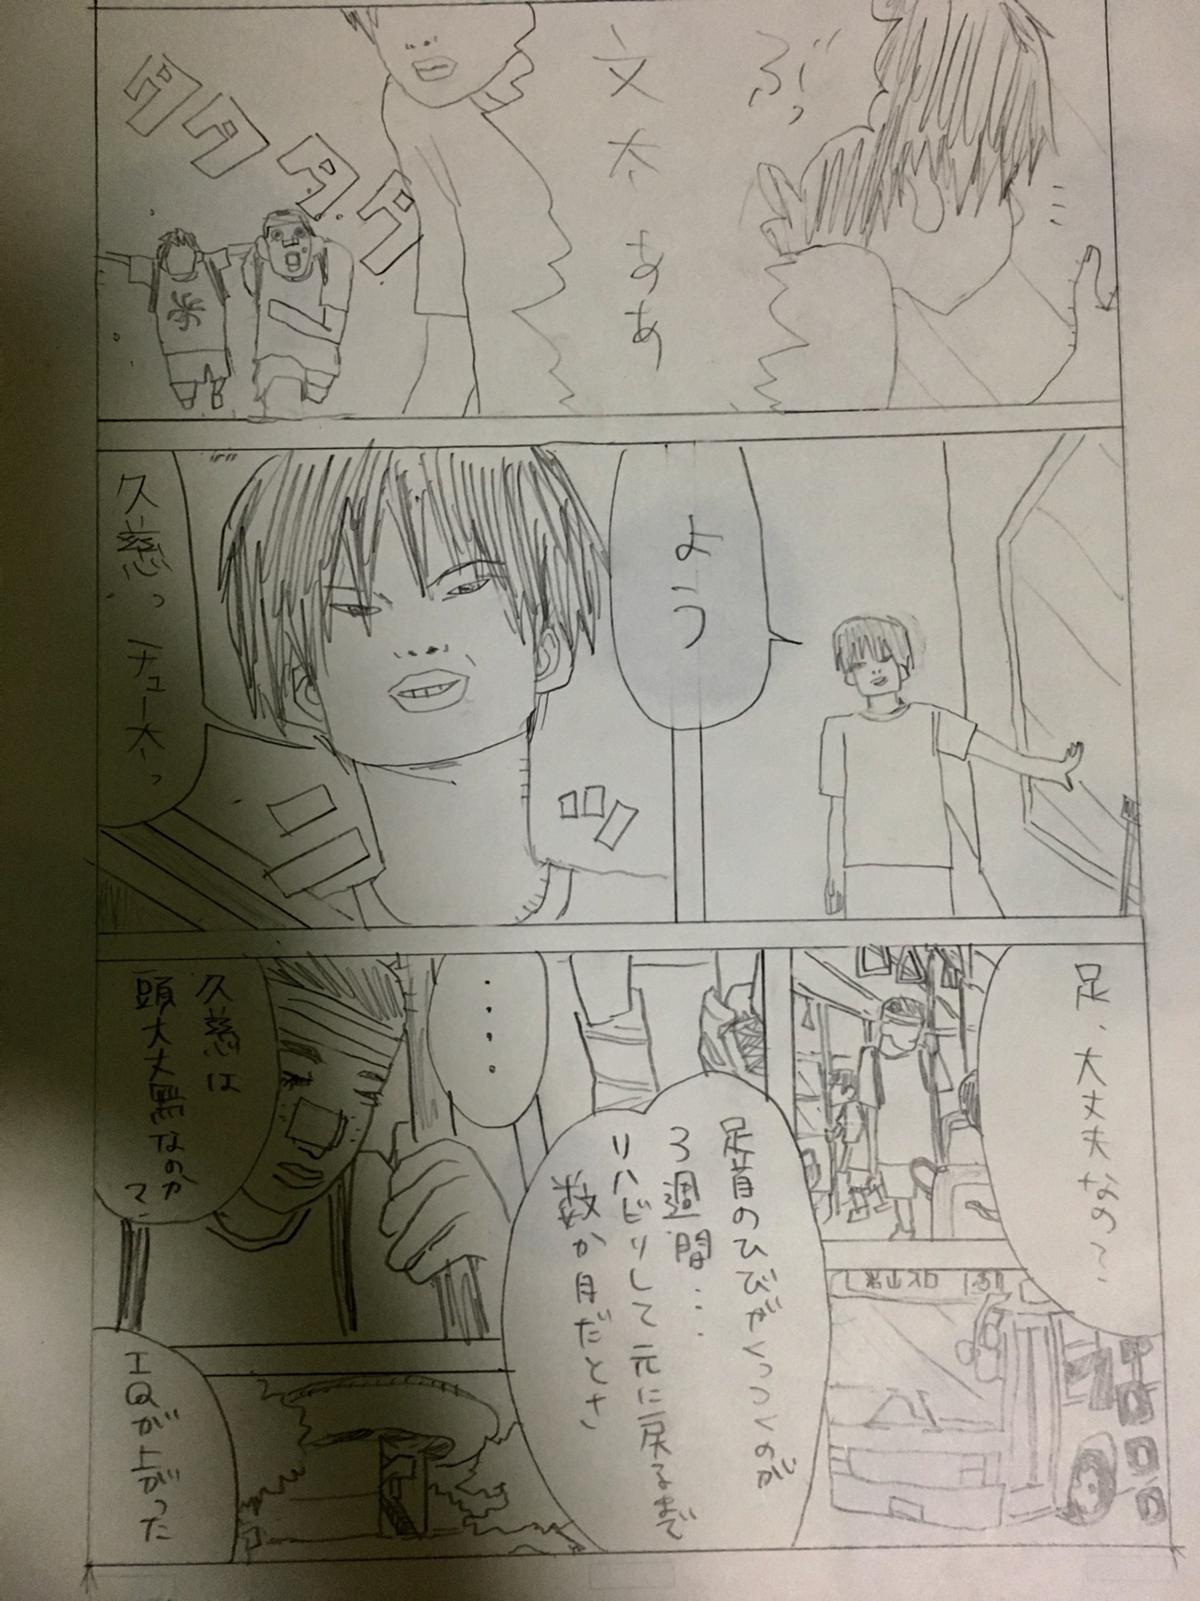 ぶっ
文太ああ
ダダダダ
よう
久慈っ チュー太っ
足、大丈夫なの?
足首のひびがくっつくのが
3週間・・・
リハビリして元に戻るまで
数か月だとさ
・・・・
久慈は
頭大丈夫なのか
?
IQが上がった